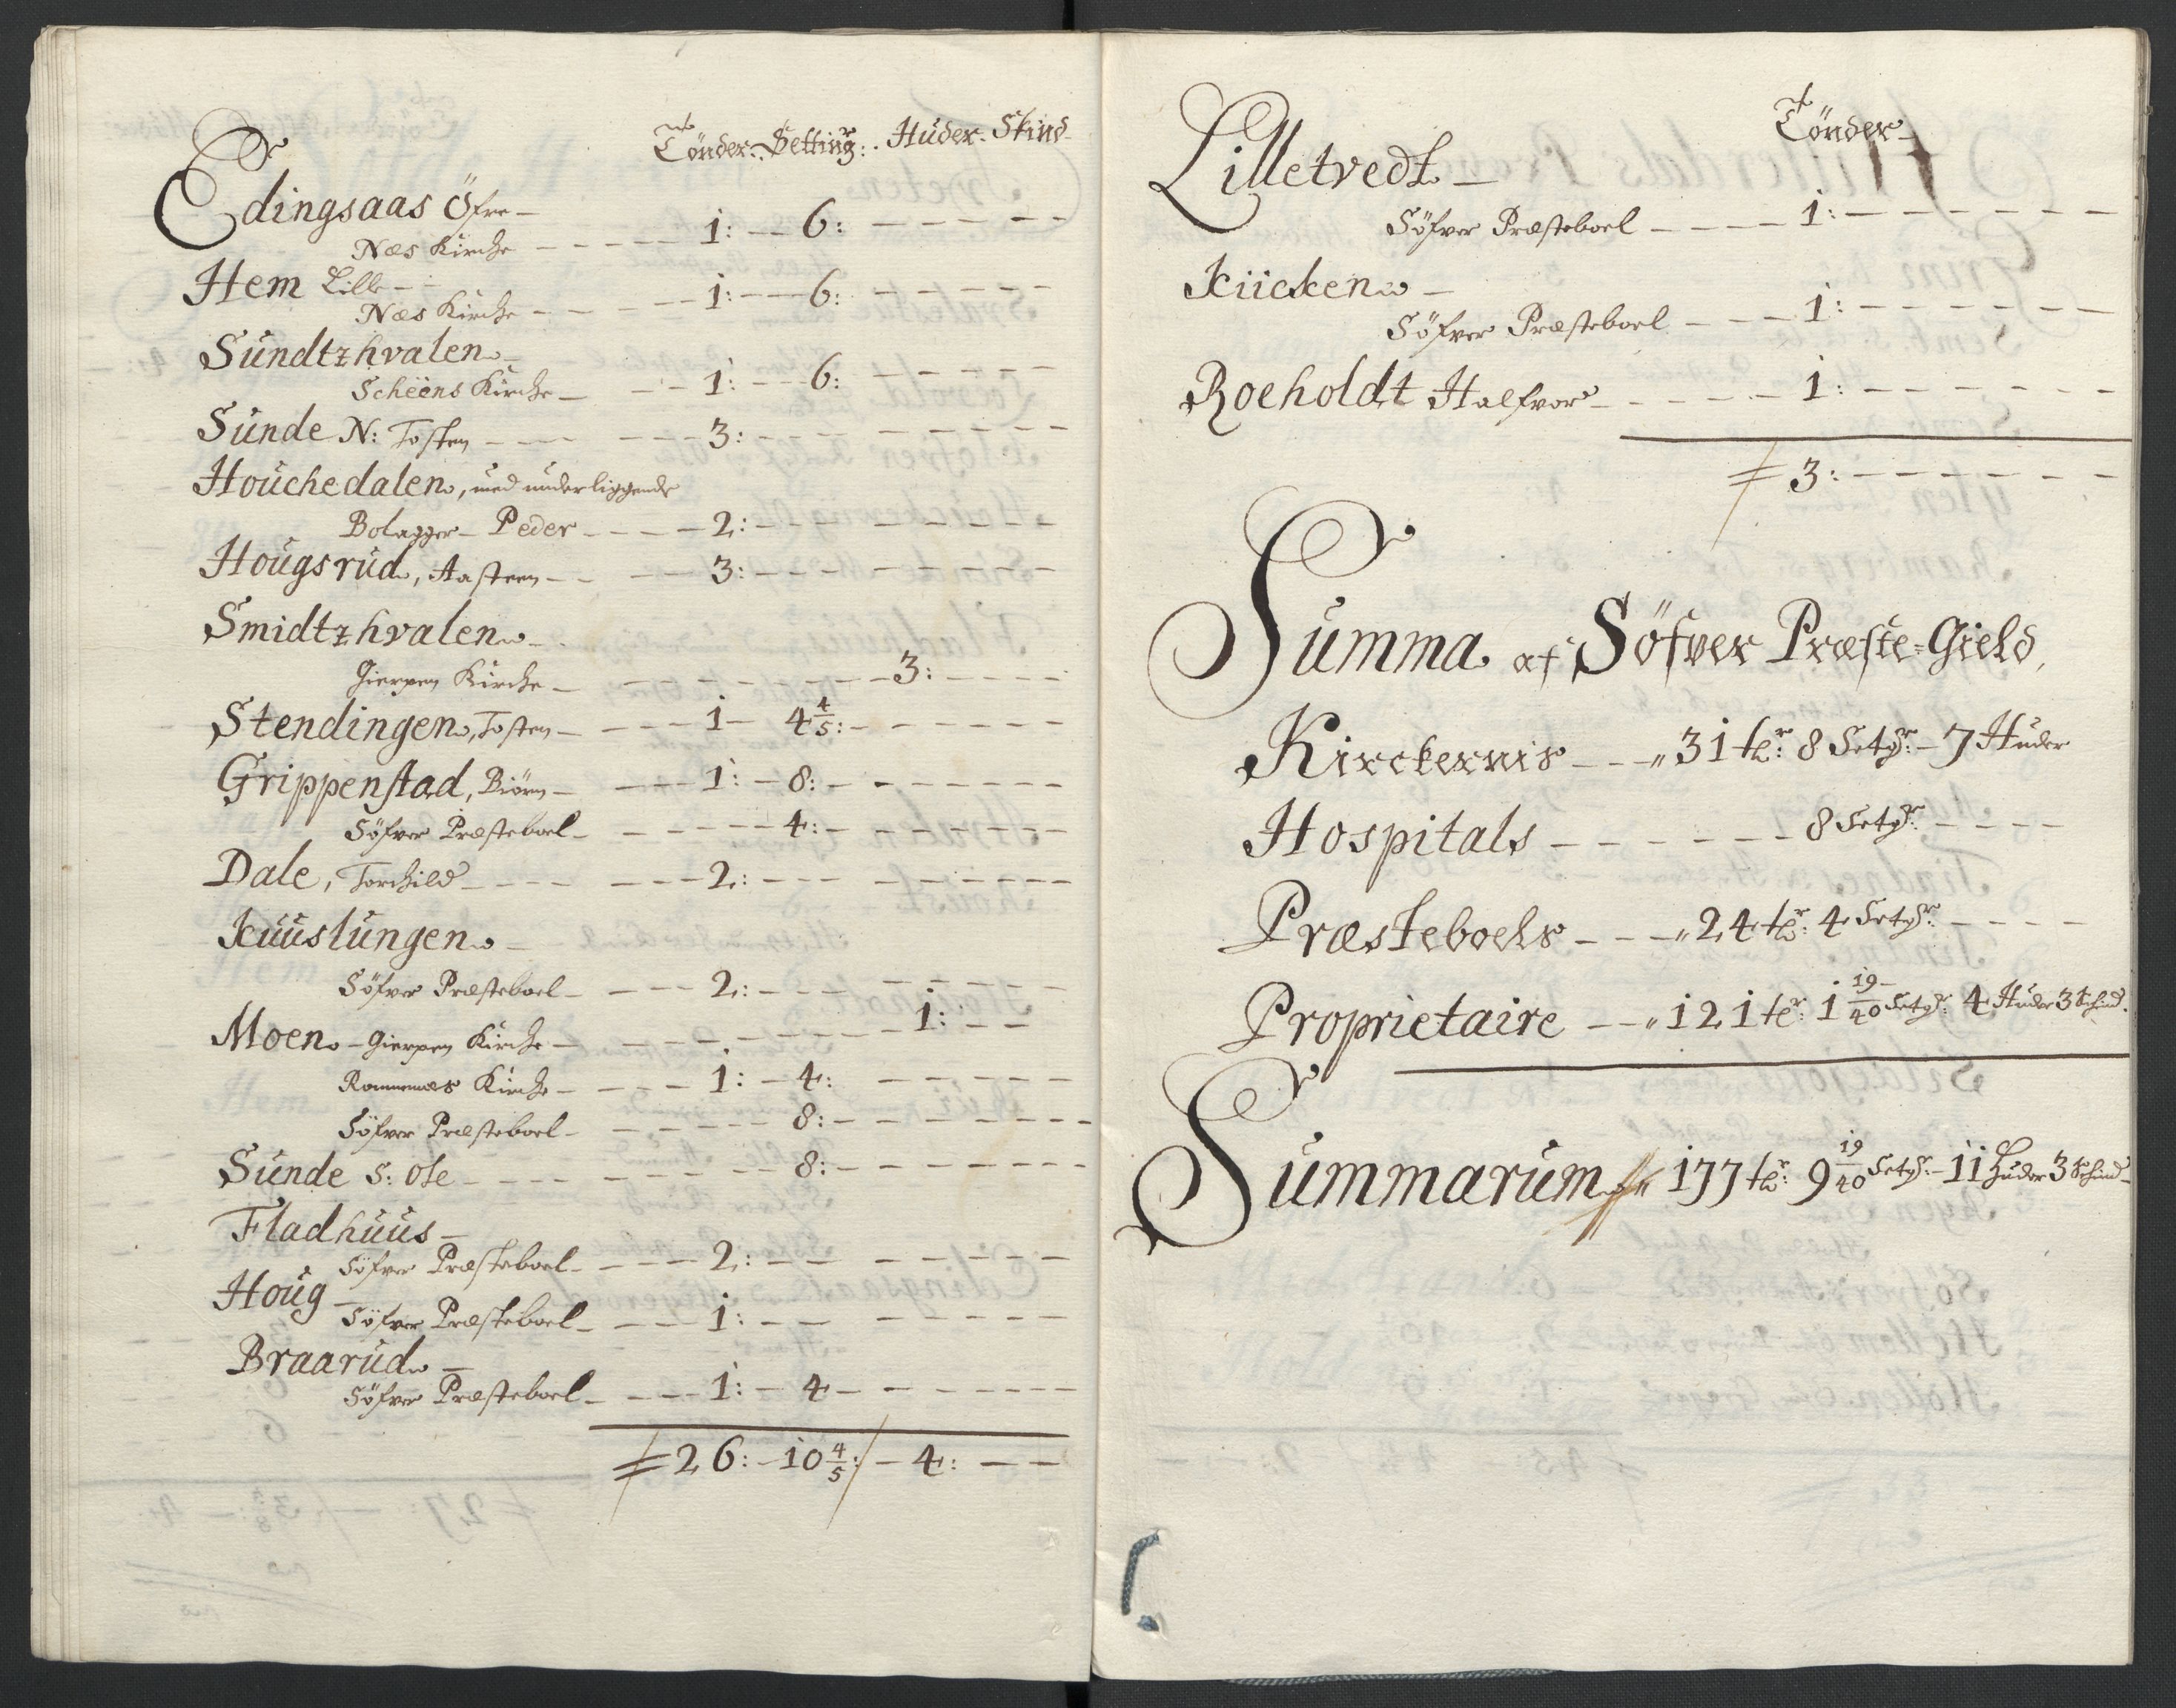 Tönder: Setting: Huder. Skind
Edingsaas Öfre
Næs Kirche 1: 6:
Hem Lille
Næs Kirche 1: 6:
Sundtzhvalen
Scheens Kirche 1: 6:
Sunde N: Tosten 3:
Houchedalen, med underliggende
Bolagger Peder 2:
Hougsrud, Aasteen 3:
Smidtzhvalen
Gierpen Kirche 3:
Stendingen, Tosten 1 4 4/5:
Grippenstad, Biörn 1: 8:
Söfver Præsteboel 4:
Dale, Torchild 2:
Kuuslungen
Söfver Præsteboel 2:
Moen Gierpen Kirche 1:
Romnæs Kirche 1: 4:
Söfver Præsteboel 8:
Sunde S: Ole 8:
Fladhuus
Söfver Præsteboel 2:
Houg
Söfver Præsteboel 1:
Braarud
Söfver Præsteboel 1: 4
26: 10 4/5: 4:
Tönder
Lilletvedt
Söfver Præsteboel 1:
Kiicken
Söfver Præsteboel 1:
Roeholdt Halfvor 1:
3:
Summa af Söfver Præste-Gield,
Kirckernis 31 tr: 8 Setgr: 7 Huder
Hospitals 8 Setgr:
Præsteboels 24 tr: 4 Setgr:
Proprietaire 121 tr: 1 19/40 Setgr: 4 Huder 3 Schind.
Summarum 177 tr: 9 19/40 Setgr: 11 Huder 3 Schind